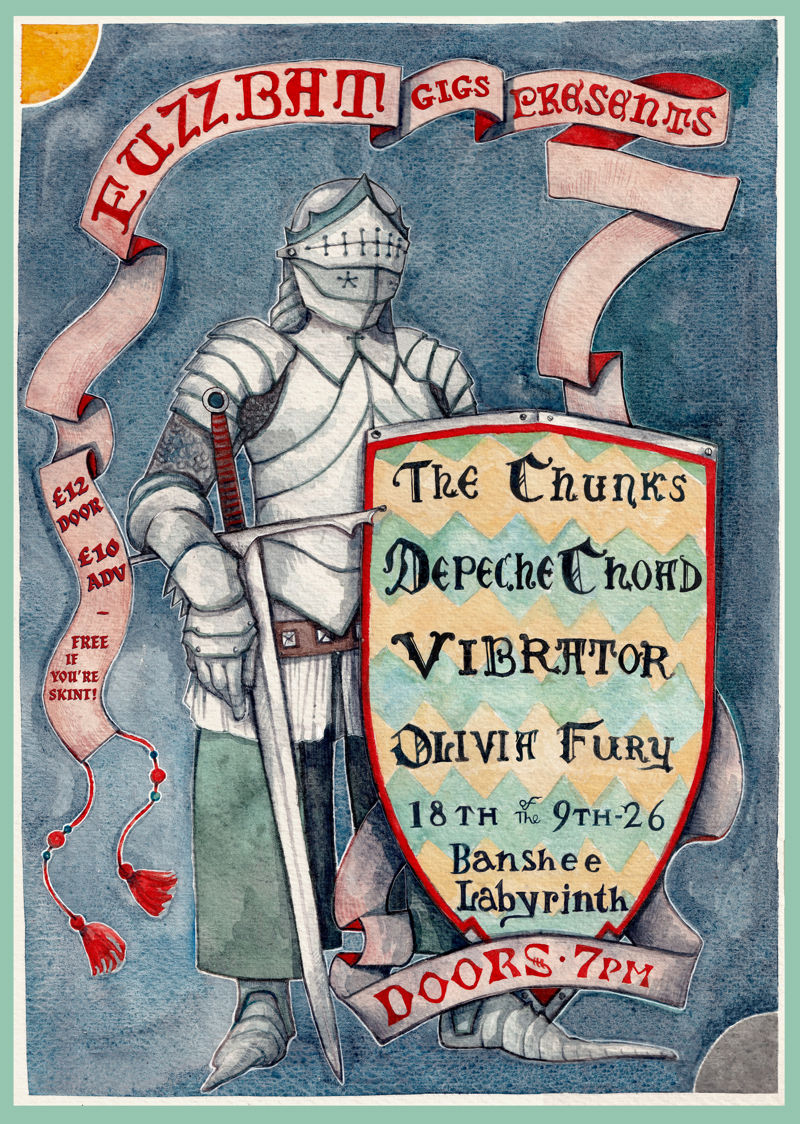 FUZZBAT GIGS PRESENTS
The Chunks
Depeche Choad
Vibrator
Olivia Fury
18TH of The 9TH-26
Banshee
Labyrinth
DOORS · 7PM
£12
DOOR
£10
ADV
-
FREE
IF
YOU'RE
SKINT!